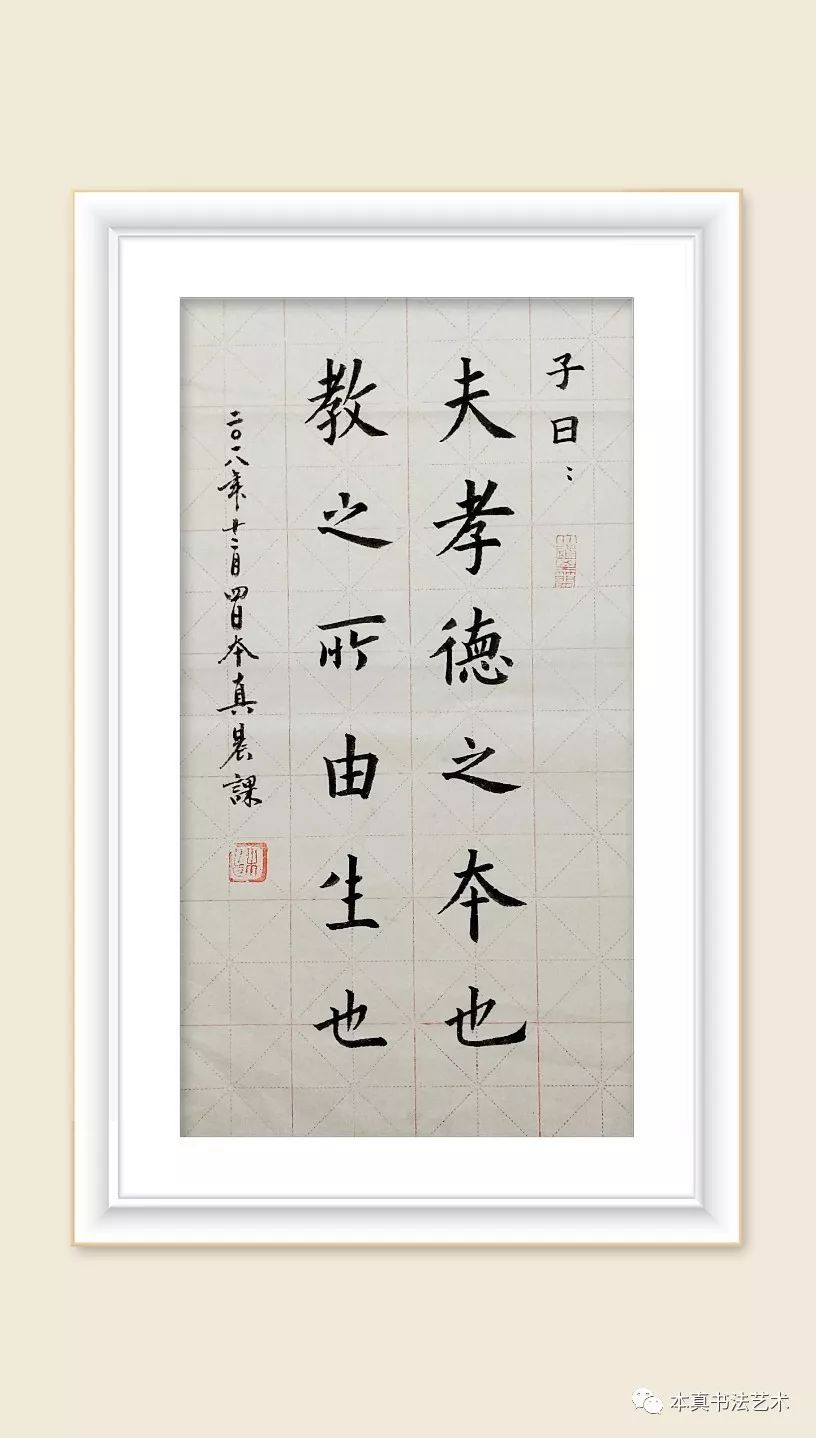 子曰：
夫孝德之本也
教之所由生也
二〇一八年十二月四日本真晨課
本真书法艺术